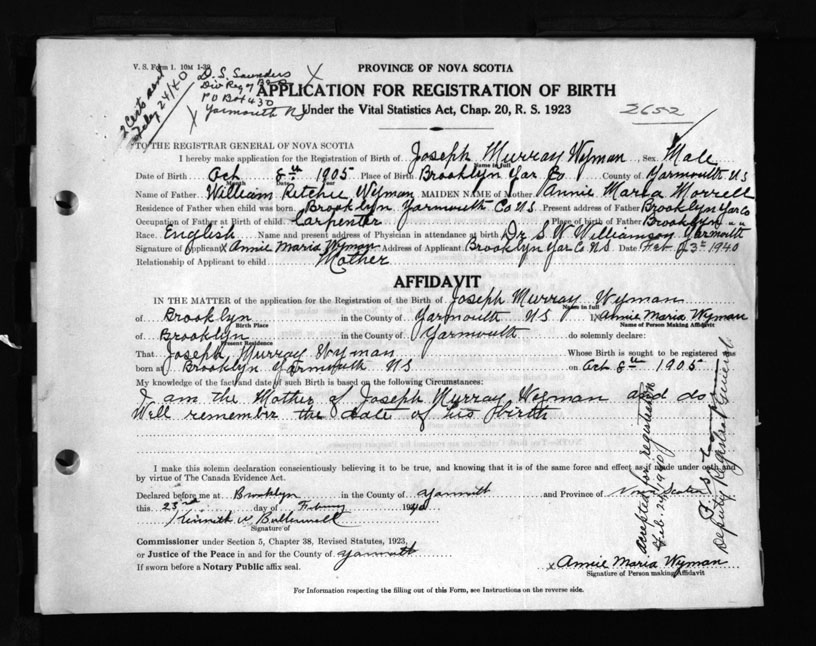 V. S. Form 1. 10M 1-39
2 Certs sent
Feby 24/40
D. S. Saunders
Div Reg
P O Box 430
Yarmouth N.S.
PROVINCE OF NOVA SCOTIA
APPLICATION FOR REGISTRATION OF BIRTH
Under the Vital Statistics Act, Chap. 20, R. S. 1923
2652
TO THE REGISTRAR GENERAL OF NOVA SCOTIA
I hereby make application for the Registration of Birth of Joseph Murray Wyman Sex Male
Name in full
Date of Birth Oct 8th 1905 Place of Birth Brooklyn Yar Co County of Yarmouth N S
Month Date Year
Name of Father William Ritchie Wyman MAIDEN NAME of Mother Annie Maria Morrell
Residence of Father when child was born Brooklyn Yarmouth Co N S Present address of Father Brooklyn Yar Co
Occupation of Father at Birth of child Carpenter Place of birth of Father Brooklyn " "
Race English Name and present address of Physician in attendance at birth Dr S W Williamson Yarmouth
Signature of Applicant x Annie Maria Wyman Address of Applicant Brooklyn Yar Co N S Date Feb 23rd 1940
Relationship of Applicant to child Mother
AFFIDAVIT
IN THE MATTER of the application for the Registration of the Birth of Joseph Murray Wyman
Name in full
of Brooklyn in the County of Yarmouth N S I, Annie Maria Wyman
Birth Place Name of Person Making Affidavit
of Brooklyn in the County of Yarmouth do solemnly declare:
Present Residence
That Joseph Murray Wyman Whose Birth is sought to be registered was
born at Brooklyn Yarmouth N S on Oct 8th 1905
My knowledge of the fact and date of such Birth is based on the following Circumstances:
I am the Mother of Joseph Murray Wyman and do
Well remember the date of his birth
I make this solemn declaration conscientiously believing it to be true, and knowing that it is of the same force and effect as if made under oath and
by virtue of The Canada Evidence Act.
Declared before me at Brooklyn in the County of Yarmouth and Province of Nova Scotia
this 23rd day of Februay 1940
Kenneth W
Signature of
Commissioner under Section 5, Chapter 38, Revised Statutes, 1923,
or Justice of the Peace in and for the County of Yarmouth
If sworn before a Notary Public affix seal.
x Annie Maria Wyman
Signature of Person making Affidavit
accepted for registration
Feb. 24, 1940
Deputy Registrar General
For Information respecting the filling out of this Form, see Instructions on the reverse side.